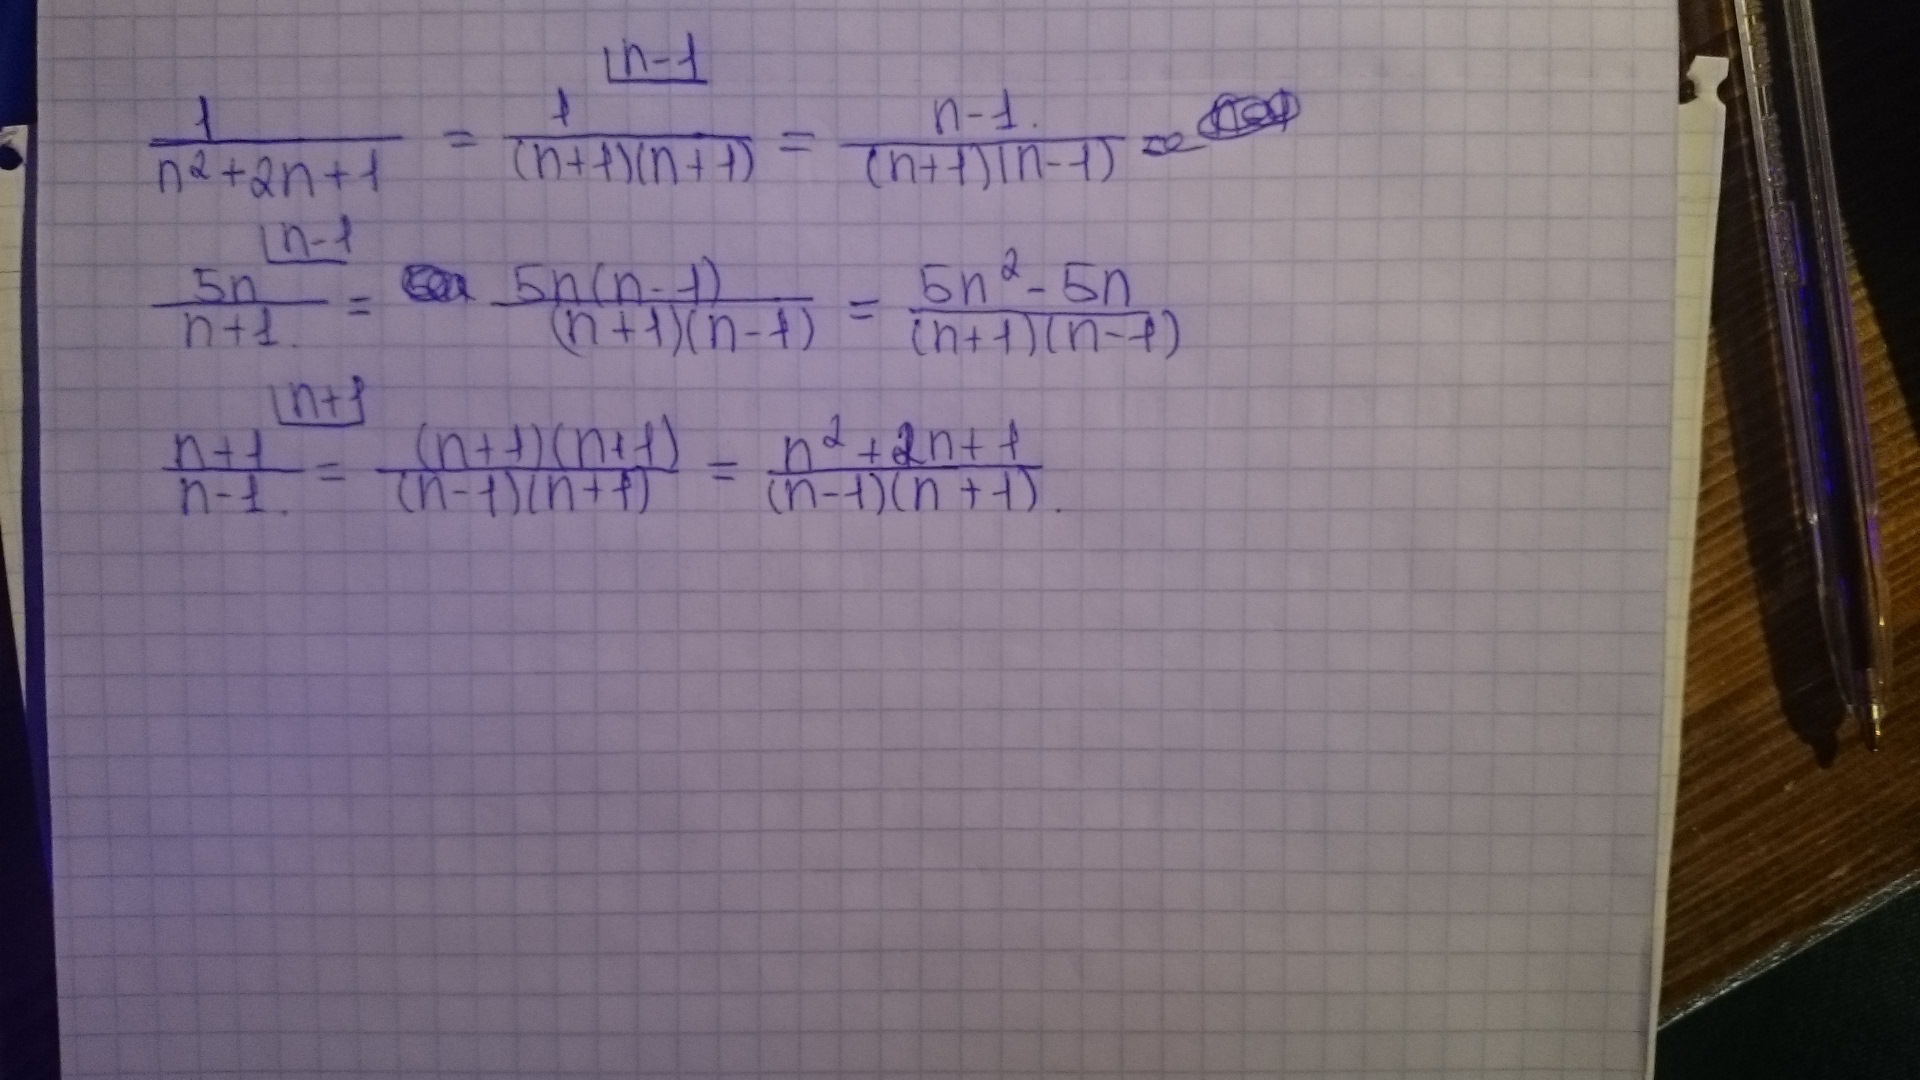 n-1
1/(n²+2n+1) = 1/((n+1)(n+1)) = n-1./((n+1)(n-1)) =
n-1
5n/(n+1.) = 5n(n-1)/((n+1)(n-1)) = (5n²-5n)/((n+1)(n-1))
n+1
(n+1)/(n-1.) = (n+1)(n+1)/((n-1)(n+1)) = (n²+2n+1)/((n-1)(n+1)).